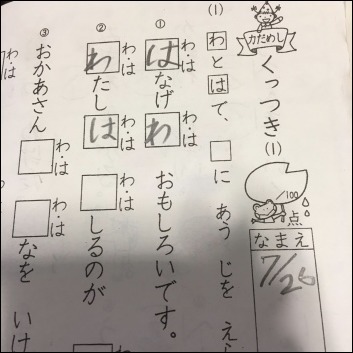 力だめし
くっつき (1)
/100
点
なまえ
7/26
(1) わとはて、□に あう じを えら
① は なげ わ おもしろいです。
わ・は
わ・は
② わ たし は □しるのが
わ・は
わ・は
わ・は
③ おかあさん□ □なを いけ
わ・は
わ・は